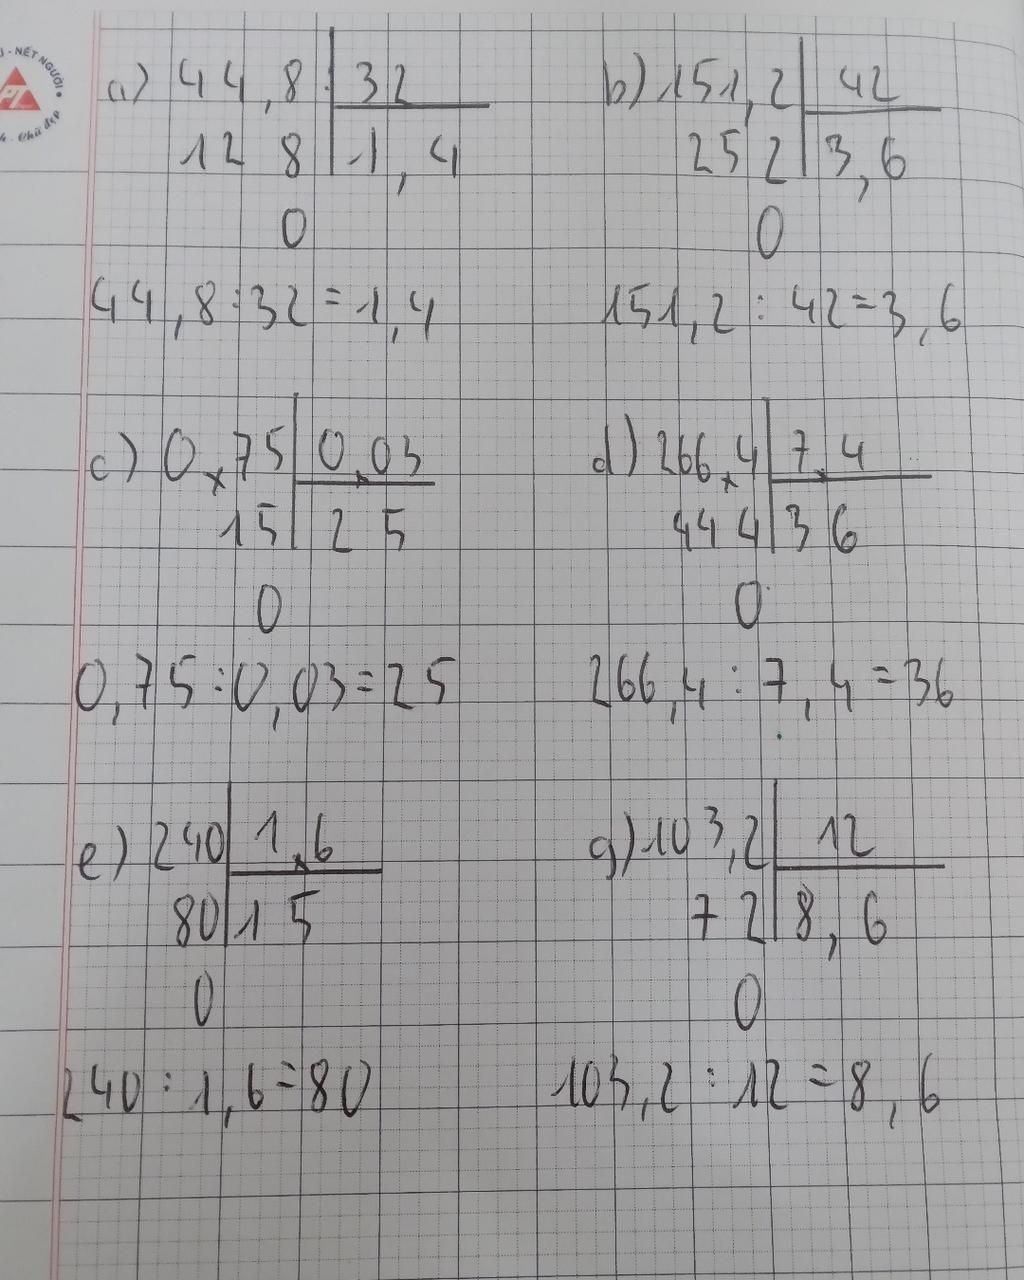 - NẾT NGƯỜI
a) 44,8 32 b) 151,2 42
12 8 1,4 25 2 3,6
0 0
44,8 : 32 = 1,4 151,2 : 42 = 3,6
c) 0,75 0,03 d) 266,4 7,4
15 25 444 36
0 0
0,75 : 0,03 = 25 266,4 : 7,4 = 36
e) 240 1,6 g) 103,2 12
80 15 7 2 8,6
0 0
240 : 1,6 = 80 103,2 : 12 = 8,6